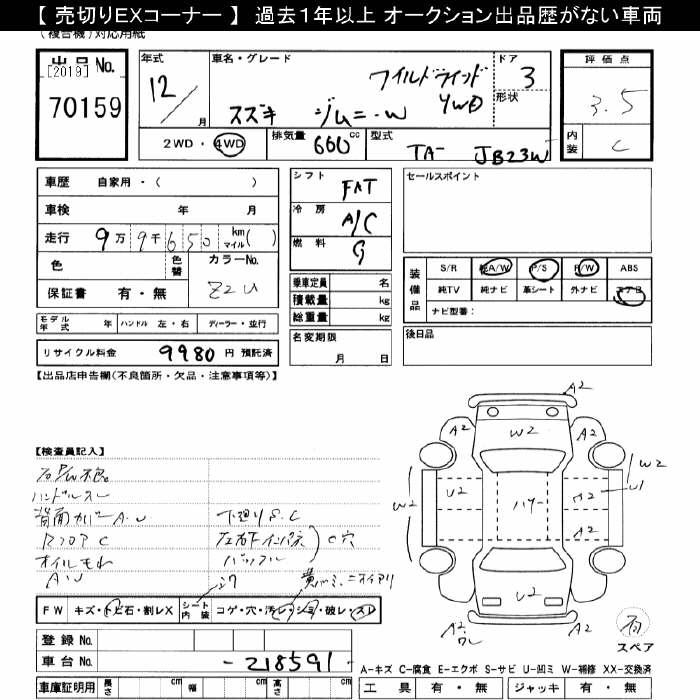 【 売切りEXコーナー 】 過去１年以上 オークション出品歴がない車両
(複合機)対応用紙
出品 No.
[2019]
70159
年式
12/
月
車名・グレード
ワイルドウインド
4WD
スズキ ジムニーW
ドア
3
形状
評価点
3.5
内装
C
2WD・4WD
排気量 660 cc
型式 TA- JB23W
車歴 自家用・( )
車検 年 月
走行 9万9千650 km マイル ( )
色
色替
カラーNo.
Z2U
保証書 有・無
シフト FAT
冷房 A/C
燃料 G
乗車定員 名
積載量 kg
総重量 kg
セールスポイント
装備品
S/R 純A/W P/S P/W ABS
純TV 純ナビ 革シート 外ナビ エアB
ナビ型番：
モデル年式 年 ハンドル 左・右 ディーラー・並行
名変期限
月 日
後日品
リサイクル料金 9980 円 預託済
【出品店申告欄(不良箇所・欠品・注意事項等)】
【検査員記入】
ハンドルスレ
背面カバーA.U
下廻りS.C
左右下インパネ
C穴
オイルモレ
A.U
バッフル
FW キズ・トビ石・割レX
シート内装
コゲ・穴・汚レ・シミ・破レ・スレ
登録 No.
車台 No. -218591-
車庫証明用 長さ cm 幅 cm 高さ cm
A2
A2 W2 A2
W2 U2 A2 U1 W2
A2
A2 A2
U2
A2
ワレ
A2
有
スペア
A－キズ C－腐食 E－エクボ S－サビ U－凹ミ W－補修 XX－交換済
工具 有・無 ジャッキ 有・無